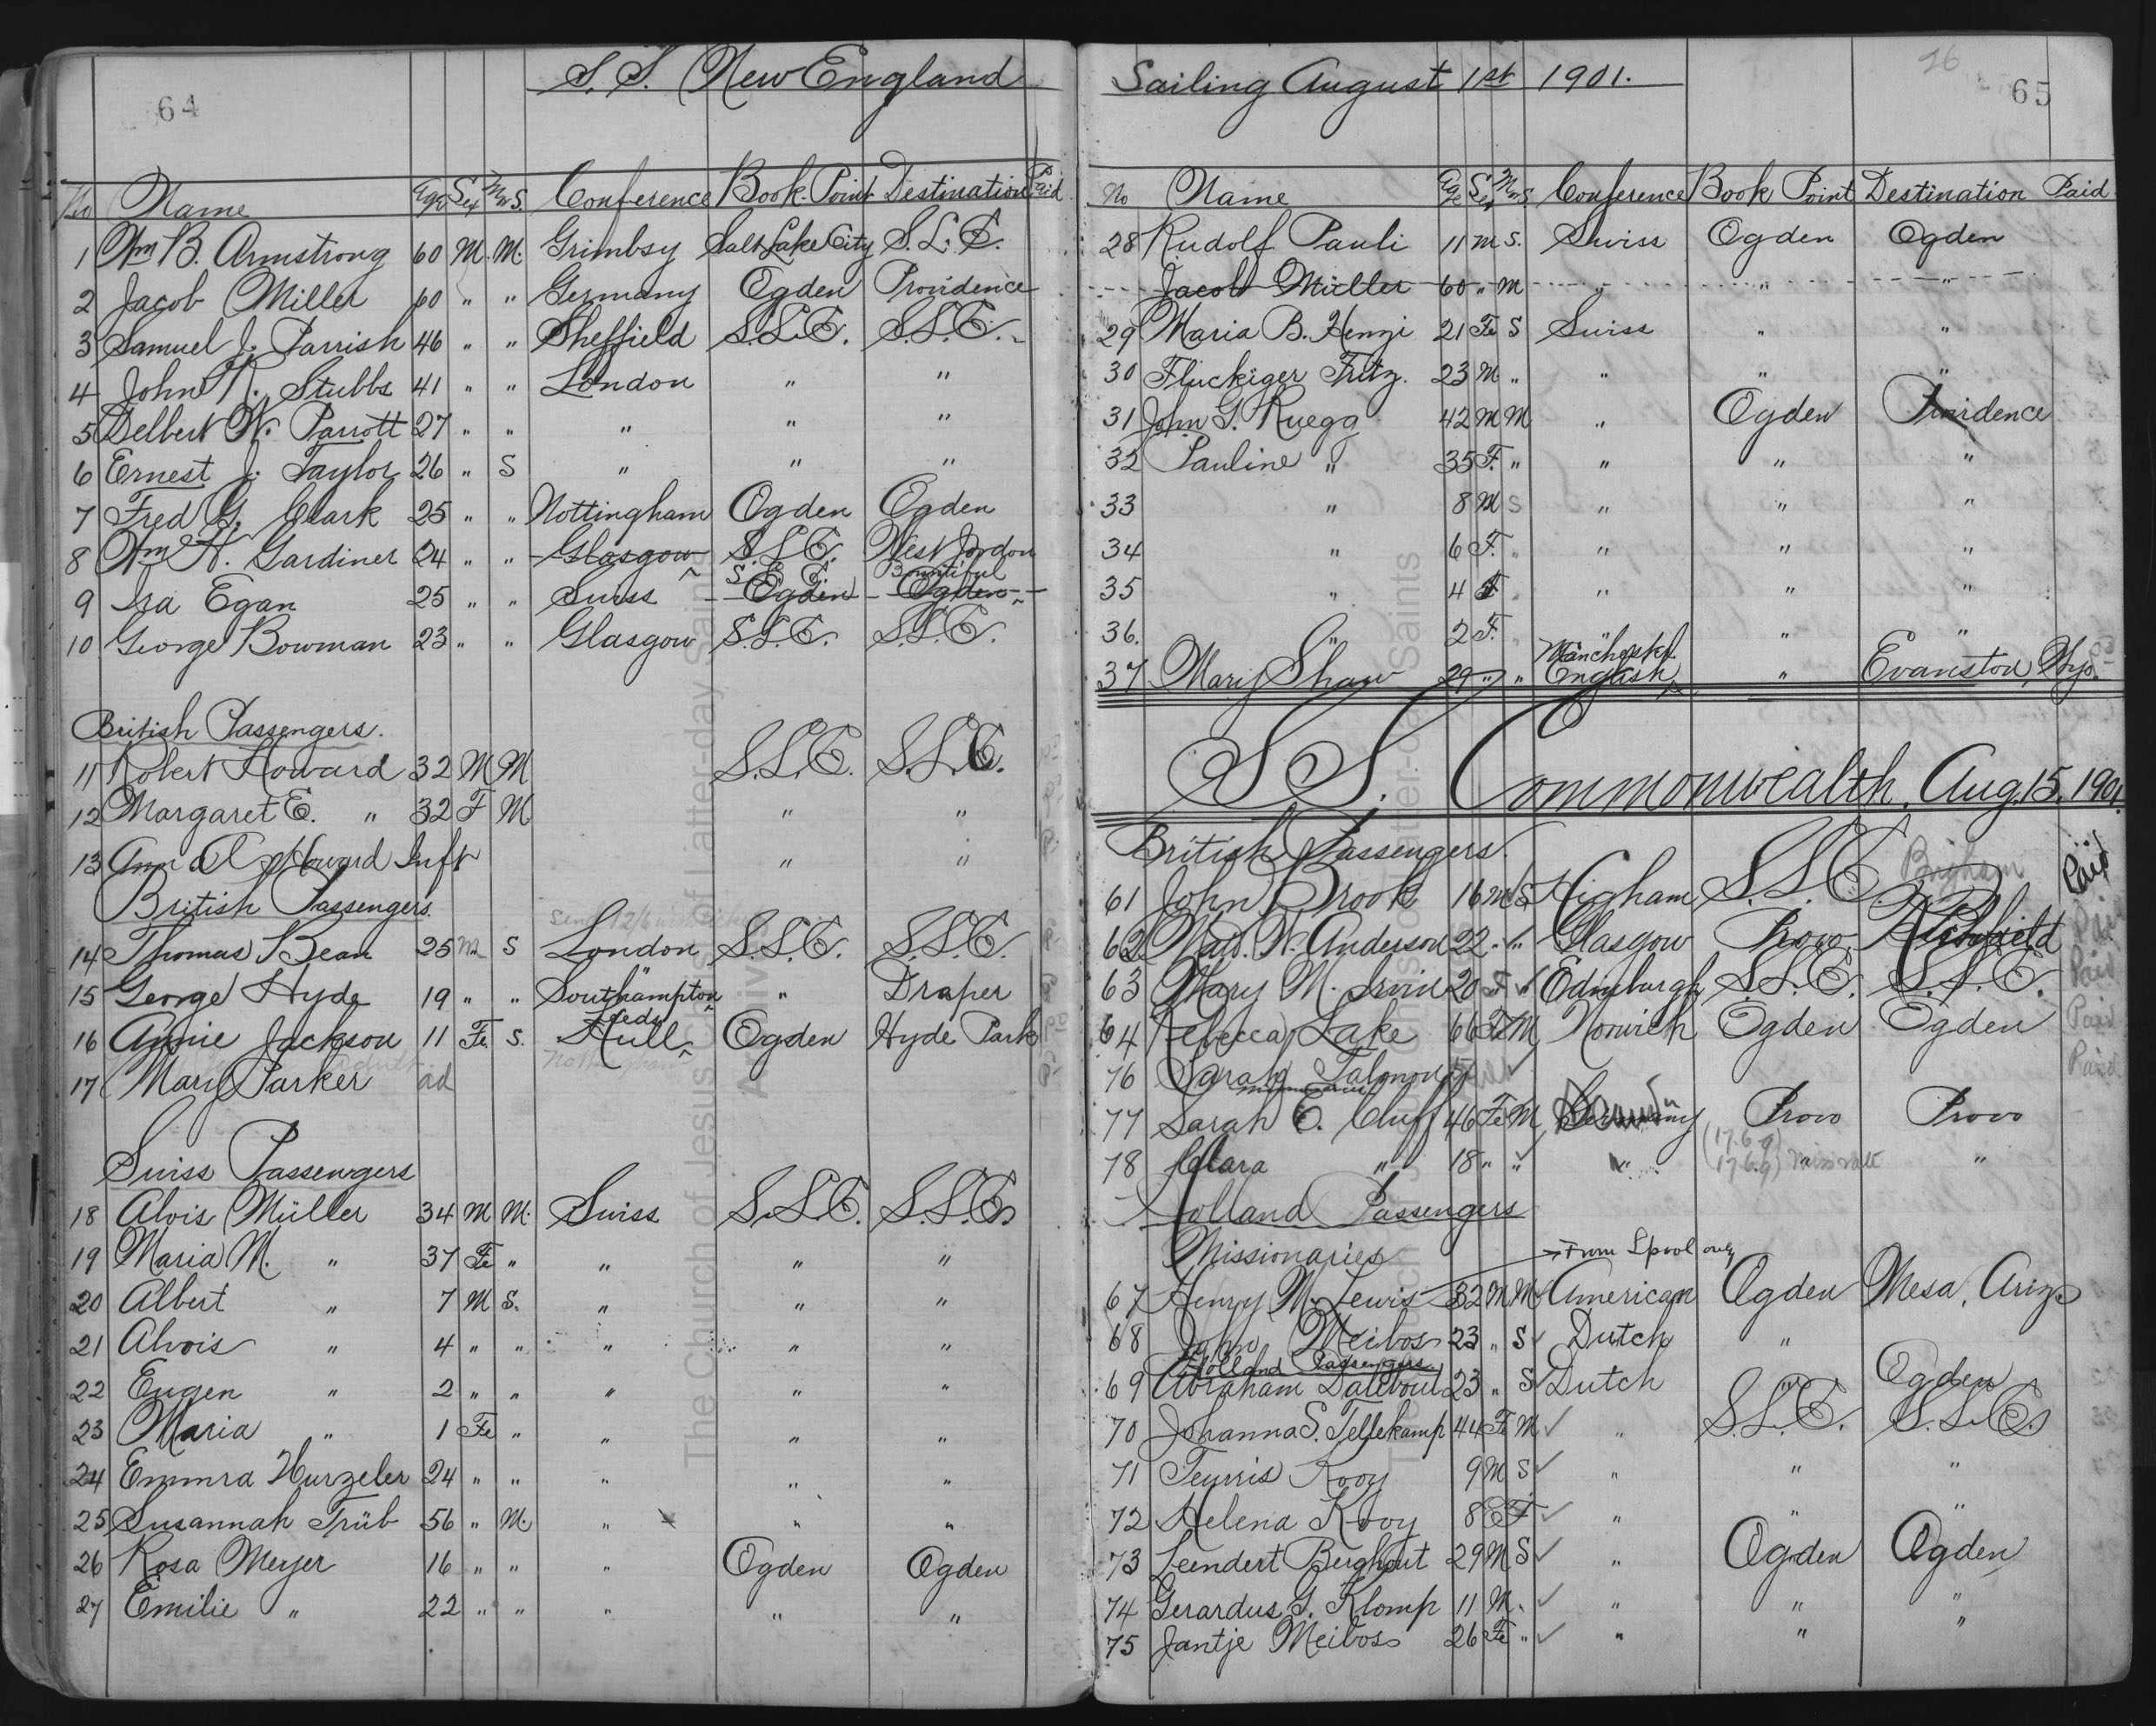 64
S.S. New England
No Name Age Sex M or S. Conference Book. Point Destination Paid
1 Wm B. Armstrong 60 M. M. Grimsby Salt Lake City S.L.C.
2 Jacob Miller 60 " " Germany Ogden Providence
3 Samuel J. Parrish 46 " " Sheffield S.L.C. S.L.C.
4 John R. Stubbs 41 " " London " "
5 Delbert W. Parrott 27 " " " " "
6 Ernest J. Taylor 26 " S " " "
7 Fred G. Clark 25 " " Nottingham Ogden Ogden
8 Wm H. Gardiner 24 " " Glasgow S.L.C. West Jordon
S.L.C. Bountiful
9 Ira Egan 25 " " Swiss Ogden Ogden
10 George Bowman 23 " " Glasgow S.L.C. S.L.C.
British Passengers.
11 Robert Howard 32 M M S.L.C. S.L.C.
12 Margaret E. " 32 F M " "
13 Ann A Howard Inft " "
British Passengers.
14 Thomas Bean 25 M S London S.L.C. S.L.C.
15 George Hyde 19 " " Southampton " Draper
Leeds
16 Annie Jackson 11 Fe. S. Hull Ogden Hyde Park
Nottingham
17 Mary Parker ad
Swiss Passengers
18 Alois Müller 34 M M. Swiss S.L.C. S.L.C.
19 Maria M. " 37 Fe " " " "
20 Albert " 7 M S. " " "
21 Alvois " 4 " " " " "
22 Eugen " 2 " " " " "
23 Maria " 1 Fe " " " "
24 Emma Hurzeler 24 " " " " "
25 Susannah Trüb 56 " M. " " "
26 Rosa Meyer 16 " " " Ogden Ogden
27 Emilie " 22 " " " " "
26
65
Sailing August 1st 1901.
No Name Age Sex M or S. Conference Book Point Destination Paid
28 Rudolf Pauli 11 M S. Swiss Ogden Ogden
Jacob Müller 60 " M " " "
29 Maria B. Henzi 21 Fe S Swiss " "
30 Fluckiger Fritz. 23 M " " " "
31 John G. Ruegg 42 M M " Ogden Providence
32 Pauline " 35 F. " " " "
33 " 8 M S " " "
34 " 6 F. " " " "
35 " 4 " " " "
36. " 2 F. " " "
Manchester
37 Mary Shaw 29 " " English " Evanston, Wyo.
S.S. Commonwealth, Aug. 15, 1901.
British Passengers.
Brigham
61 John Brook 16 M S Higham S.L.C. Paid
62 Maw. W. Anderson 22 " " Glasgow Provo Richfield Paid
63 Mary M. Irvin 20 F " Edinburgh S.L.C. S.L.C. Paid
64 Rebecca Lake 66 Fe M Norwich Ogden Ogden Paid
76 Sarah Paid
77 Sarah E. Cluff 46 Fe M Germany Provo Provo
(17.6.9)
78 Clara " 18 " " " (17.6.9) " "
Holland Passengers
Missionaries
→ From Lpool only
67 Henry M. Lewis 32 M M American Ogden Mesa, Ariz.
68 John Meibos 23 " S Dutch "
Holland Passengers.
69 Abraham Dalebout 23 " S Dutch " Ogden
70 Johanna S. Tellekamp 44 Fe M " S.L.C. S.L.C.
71 Teunis Kooy 9 M S " " "
72 Helena Kooy 8 F " " "
73 Leendert Berghout 29 M S " Ogden Ogden
74 Gerardus G. Klomp 11 M " " " "
75 Jantje Meibos 26 Fe " " " "
The Church of Jesus Christ of Latter-day Saints
Archives
The Church of Jesus Christ of Latter-day Saints